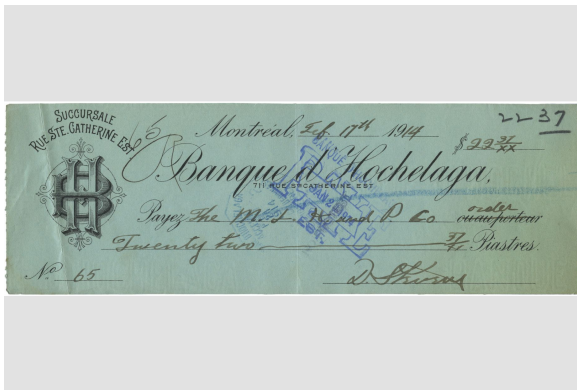 SUCCURSALE
RUE STE. CATHERINE EST
22 37
Montréal, Feb. 17th 1914
$ 22 37/xx
Banque d'Hochelaga,
711 RUE STE CATHERINE EST
Payez The M. L. H and P Co order ou au porteur
Twenty two 37/xx Piastres.
No 65